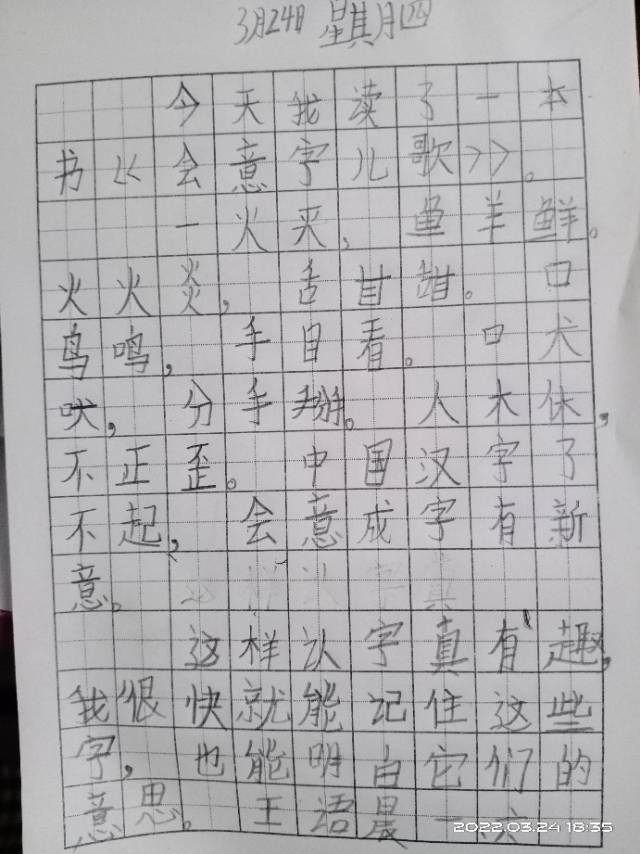 3月24日 星其月四
今天我读了一本
书《会意字儿歌》。
一火灭，鱼羊鲜。
火火炎，舌甘甜。口
鸟鸣，手目看。口犬
吠，分手掰。人木休，
不正歪。中国汉字了
不起，会意成字有新
意。
这样认字真有趣，
我很快就能记住这些
字，也能明白它们的
意思。王语晨 一六
2022.03.24 18:35